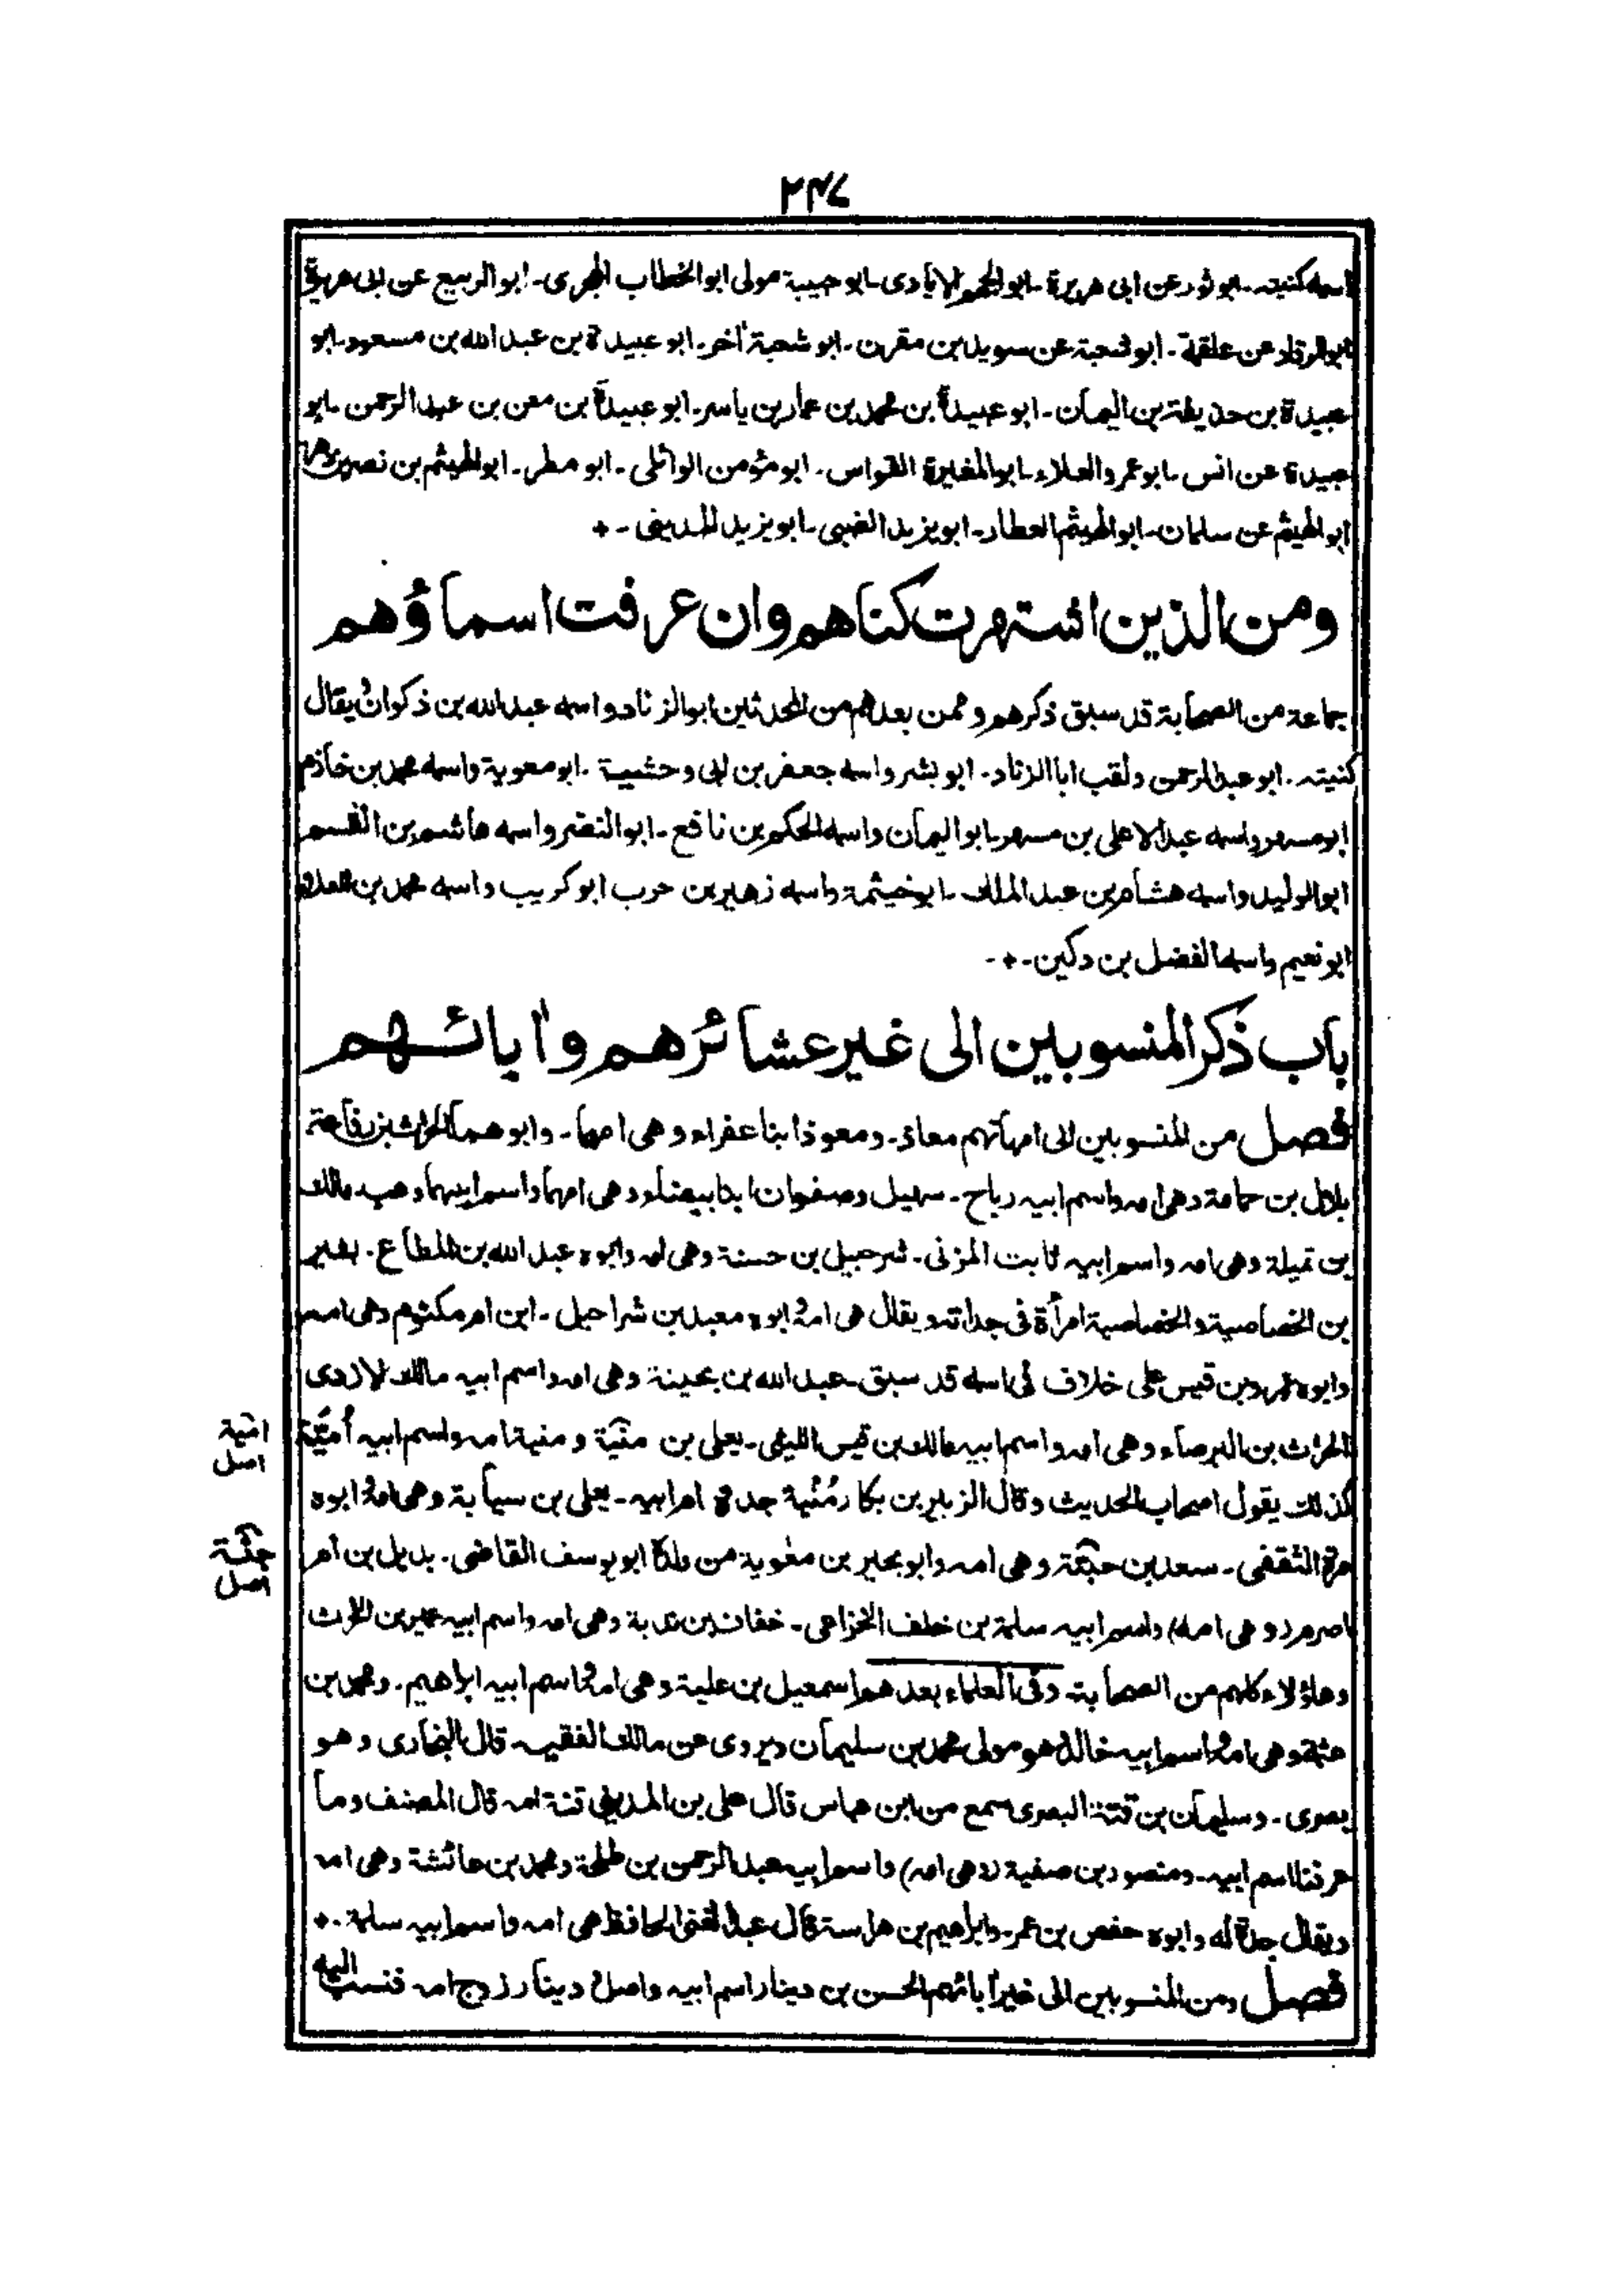 ۲۴۷
اسمه كنيته۔ ابو ثور عن ابى هريرة۔ ابو الجهم الايادى۔ ابو حبيبة مولى ابو الخطاب الهجرى۔ ابو الربيع عن ابى هريرة
ابو الرقاد عن علقمة۔ ابو شعبة عن سويد بن مقرن۔ ابو شعبة آخر۔ ابو عبيدة بن عبد الله بن مسعود۔ ابو
عبيدة بن حذيفة بن اليمان۔ ابو عبيدة بن محمد بن عمار بن ياسر۔ ابو عبيدة بن معن بن عبد الرحمن۔ ابو
عبيدة عن انس۔ ابو عمرو العلاء۔ ابو المغيرة القواس۔ ابو مؤمن الوائلى۔ ابو مطر۔ ابو الهيثم بن نصر
ابو الهيثم عن سلمان۔ ابو الهيثم العطار۔ ابو يزيد الضبى۔ ابو يزيد المدينى۔
ومن الذين اشتهرت كناهم وان عرفت اسماؤهم
جماعة من الصحابة قد سبق ذكرهم وممن بعدهم من المحدثين ابو الزناد واسمه عبد الله بن ذكوان يقال
كنيته۔ ابو عبد الرحمن ولقب ابا الزناد۔ ابو بشر واسمه جعفر بن ابى وحشية۔ ابو معوية واسمه محمد بن خازم
ابو مسهر واسمه عبد الاعلى بن مسهر۔ ابو اليمان واسمه الحكم بن نافع۔ ابو النضر واسمه هاشم بن القسم
ابو الوليد واسمه هشام بن عبد الملك۔ ابو خيثمة واسمه زهير بن حرب ابو كريب واسمه محمد بن العلاء
ابو نعيم واسمه الفضل بن دكين۔
باب ذكر المنسوبين الى غير عشائرهم وآبائهم
فصل من المنسوبين الى امهاتهم معاذ۔ ومعوذ ابنا عفراء وهى امهما۔ وابوهما الحرث بن رفاعة
بلال بن حمامة وهى امه واسم ابيه رباح۔ سهيل وصفوان ابنا بيضاء وهى امهما واسم ابيهما وهب۔ مالك
بن نميلة وهى امه واسم ابيه ثابت المزنى۔ شرحبيل بن حسنة وهى امه وابوه عبد الله بن المطاع۔ بشير
بن الخصاصية والخصاصية امرأة فى جداته ويقال هى امه وابوه معبد بن شراحيل۔ ابن ام مكتوم وهى امه
وابوه عمرو بن قيس على خلاف فى اسمه قد سبق۔ عبد الله بن بحينة وهى امه واسم ابيه مالك الازدى
الحرث بن البرصاء وهى امه واسم ابيه مالك بن قيس الليثى۔ يعلى بن منية ومنية امه واسم ابيه أُميّة
امية
اصل
كذلك يقول اصحاب الحديث وقال الزبير بن بكار مُنْية جدة ام ابيه۔ يعلى بن سيابة وهى امه وابوه
مرة الثقفى۔ سعد بن حبتة وهى امه وابو بجير بن معوية من ولده ابو يوسف القاضى۔ بديل بن ام
اصل
اصرم (وهى امه) واسم ابيه سلمة بن خلف الخزاعى۔ خفاف بن ندبة وهى امه واسم ابيه عمير بن الحرث
وهاؤلاء كلهم من الصحابة وفى العلماء بعدهم اسمعيل بن علية وهى امه واسم ابيه ابراهيم۔ ومحمد بن
عثمة وهى امه واسم ابيه خالد وهو مولى محمد بن سليمان ويروى عن مالك الفقيه قال البخارى وهو
بصرى۔ وسليمان بن قتة البصرى سمع من ابن عباس قال على بن المدينى قتة امه قال المصنف وما
عرفنا اسم ابيه۔ ومنصور بن صفية (وهى امه) واسم ابيه عبد الرحمن بن طلحة ومحمد بن عائشة وهى امه
ويقال جدة له وابوه حفص بن عمر۔ وابراهيم بن هراسة قال عبد الغنى الحافظ هى امه واسم ابيه سلمة۔
فصل ومن المنسوبين الى غير آبائهم الحسن بن دينار اسم ابيه واصل ودينار زوج امه فنسب اليه